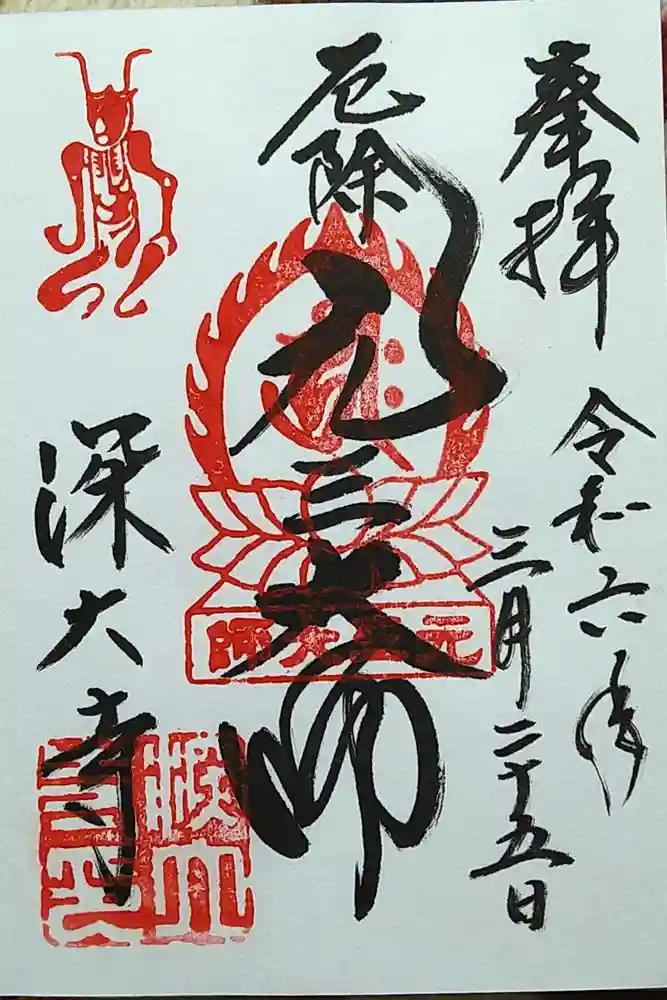 奉拝
令和六年
三月二十五日
厄除
元三大師
元三大師
深大寺